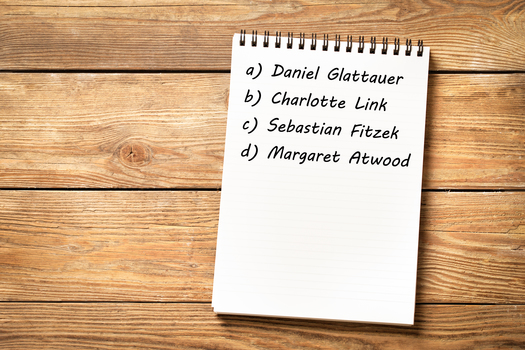 a) Daniel Glattauer
b) Charlotte Link
c) Sebastian Fitzek
d) Margaret Atwood